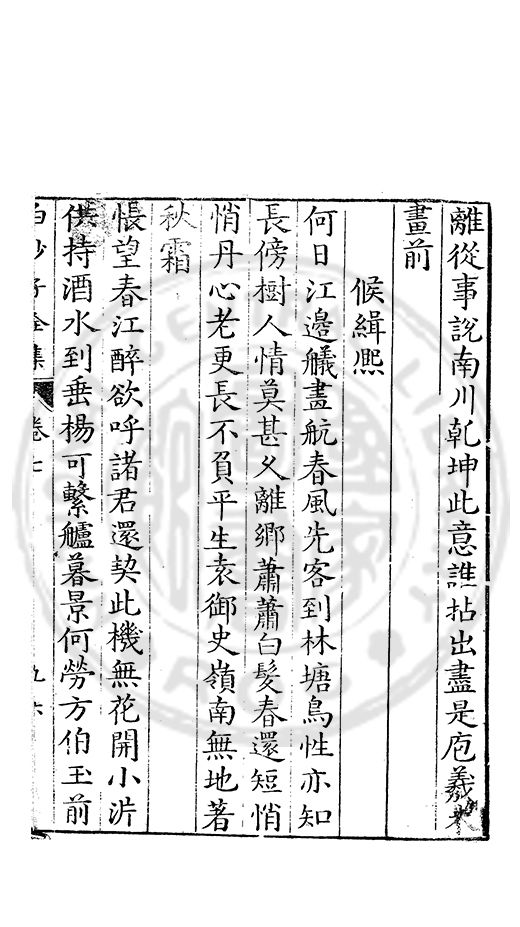 離從事說南川乾坤此意誰拈出盡是庖羲未
畫前
候緝熙
何日江邊艤畫航春風先客到林塘鳥性亦知
長傍樹人情莫甚乆離鄉蕭蕭白髮春還短悄
悄丹心老更長不負平生袁御史嶺南無地著
秋霜
悵望春江醉欲呼諸君還契此機無花開小泝
供持酒水到垂楊可繫艫暮景何勞方伯玉前
白沙子全集 卷七